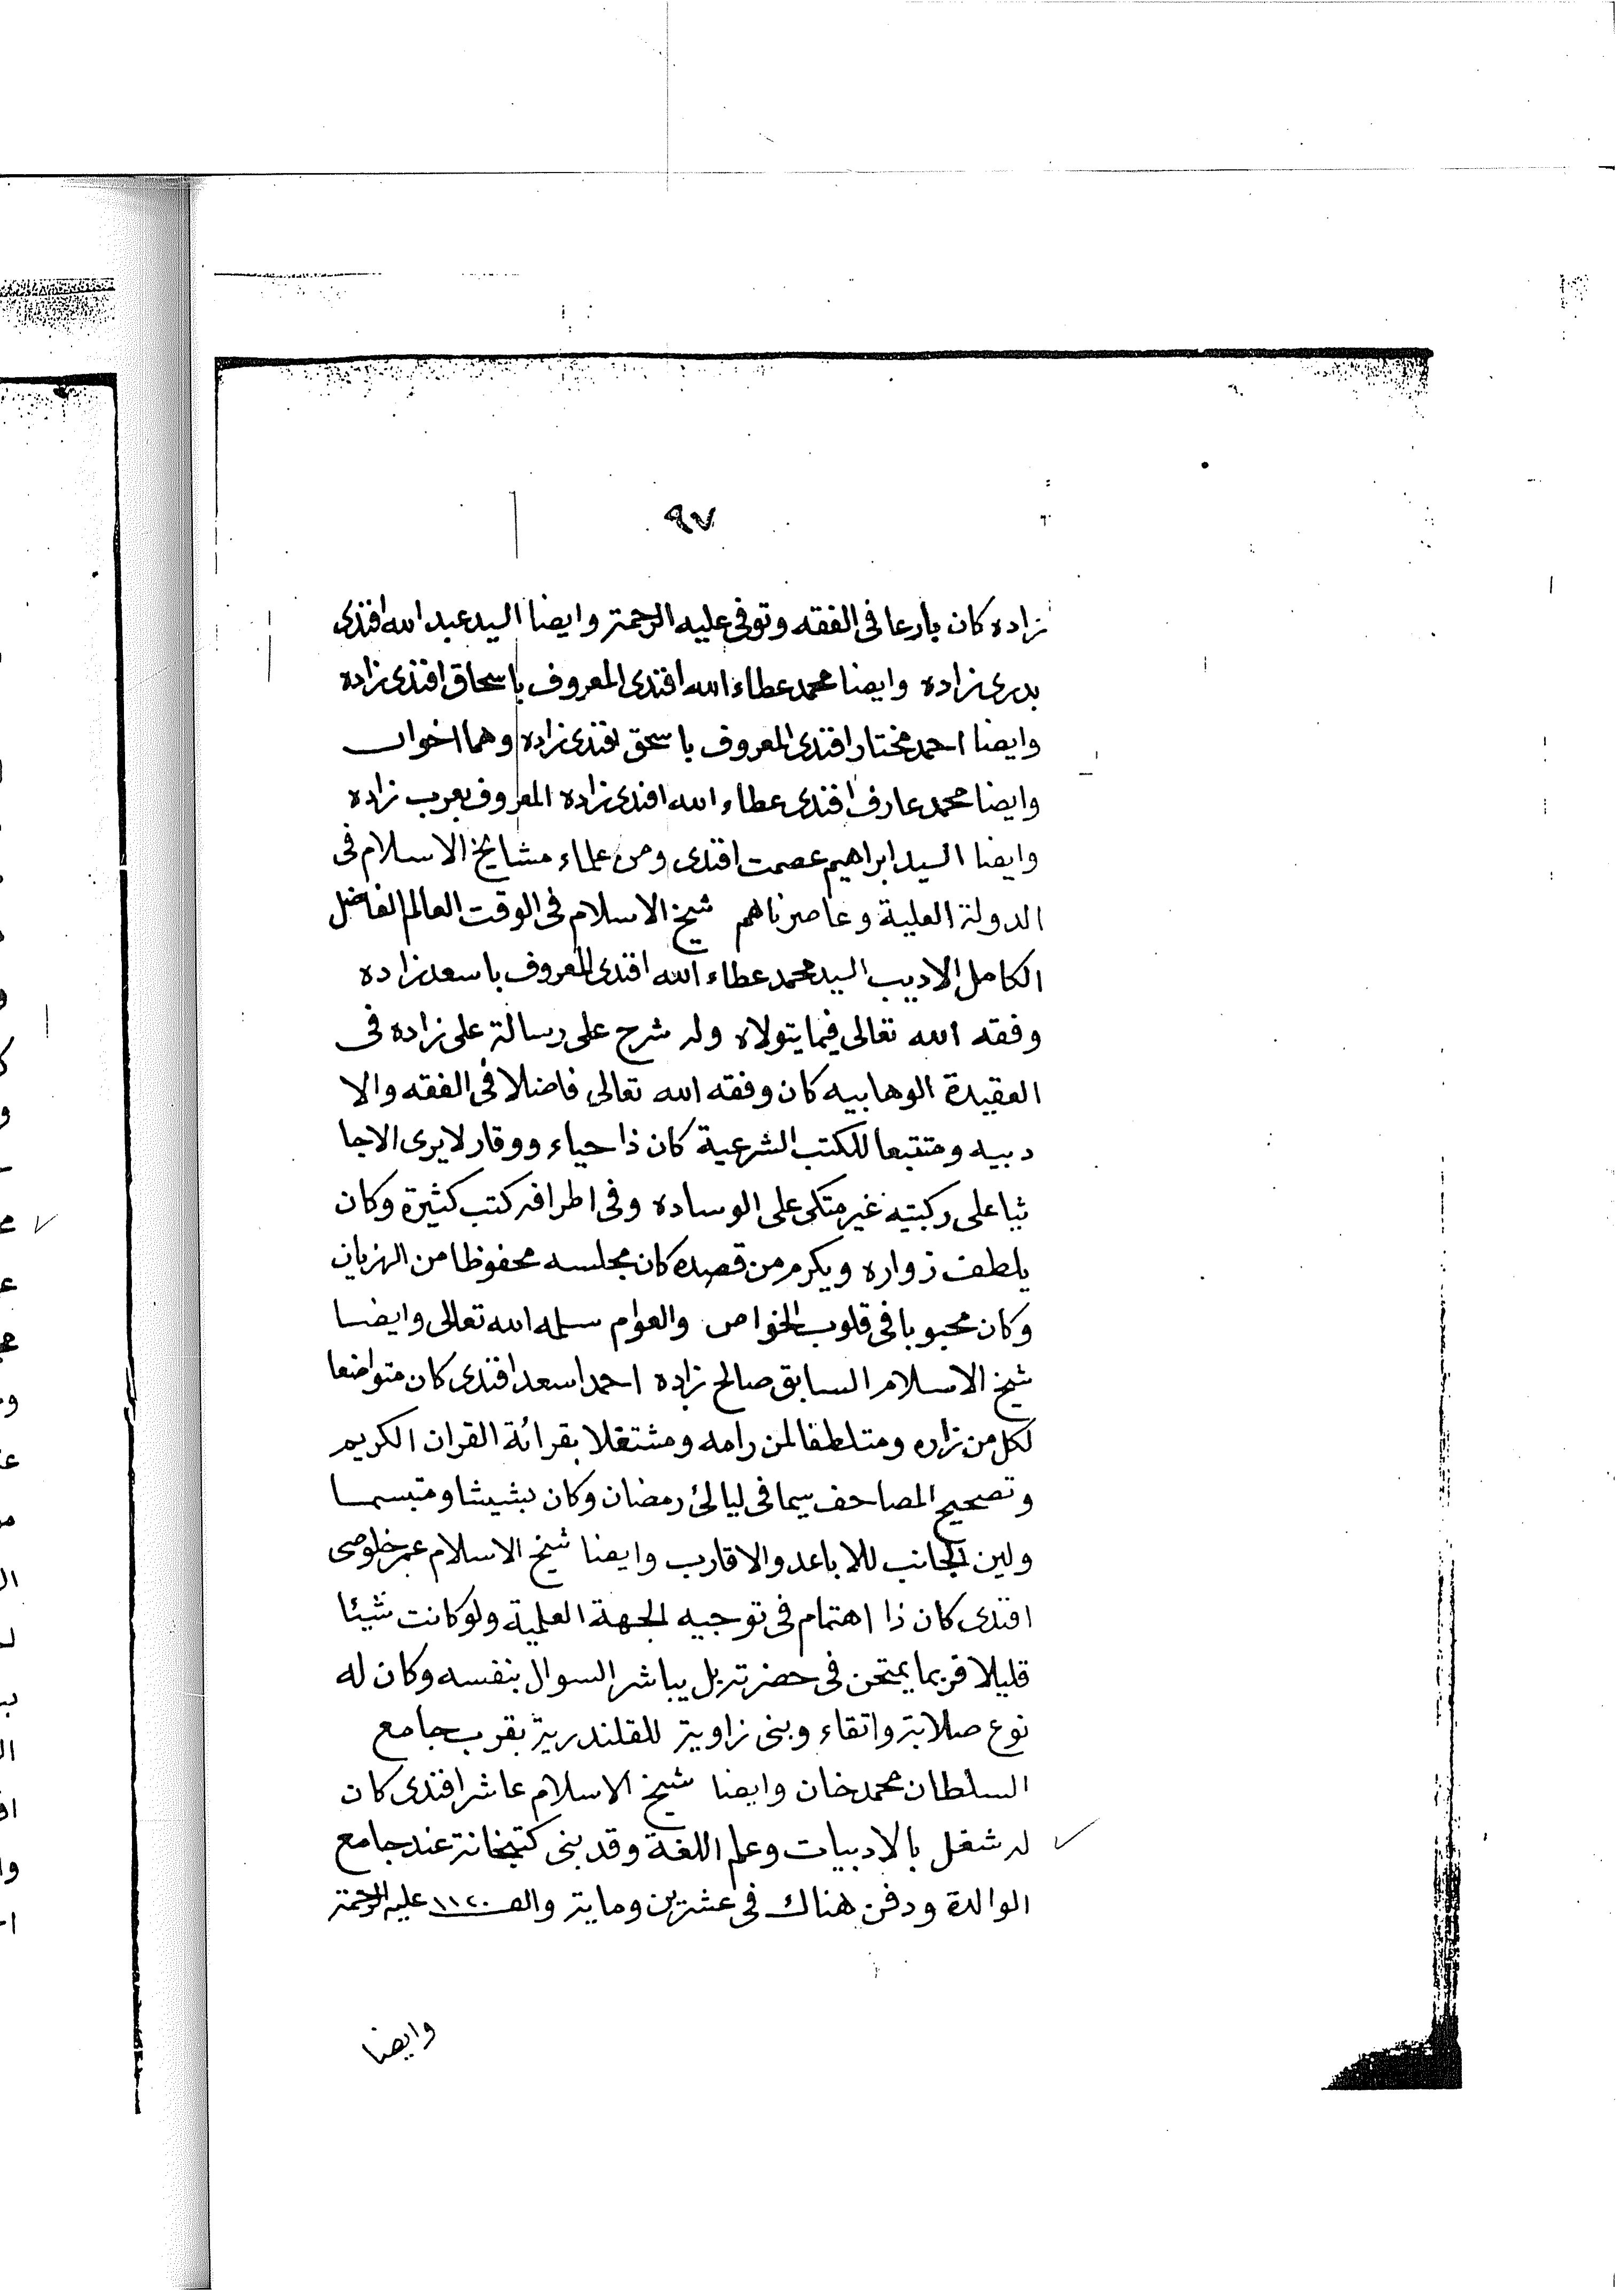 ٩٧
زاده كان بارعا فى الفقه وتوفى عليه الرحمة وايضا السيد عبد الله افندى
بدرى زاده وايضا محمد عطاء الله افندى المعروف باسحاق افندى زاده
وايضا احمد مختار افندى المعروف باسحق افندى زاده وهما اخوان
وايضا محمد عارف افندى عطاء الله افندى زاده المعروف بعرب زاده
وايضا السيد ابراهيم عصمت افندى ومن علماء مشايخ الاسلام فى
الدولة العلية وعاصرناهم شيخ الاسلام فى الوقت العالم الفاضل
الكامل الاديب السيد محمد عطاء الله افندى المعروف باسعد زاده
وفقه الله تعالى فيما يتولاه وله شرح على رسالة على زاده فى
العقيدة الوهابيه كان وفقه الله تعالى فاضلا فى الفقه والا
دبيه ومتتبعا للكتب الشرعية كان ذا حياء ووقار لا يرى الا جا
ثيا على ركبتيه غير متكى على الوساده وفى اطرافه كتب كثيرة وكان
يلطف زواره ويكرم من قصده كان مجلسه محفوظا من الهزيان
وكان محبوبا فى قلوب الخواص والعوام سلمه الله تعالى وايضا
شيخ الاسلام السابق صالح زاده احمد اسعد افندى كان متواضعا
لكل من زاره ومتلطفا لمن رامه ومشتغلا بقرائة القران الكريم
وتصحيح المصاحف سيما فى ليالئ رمضان وكان بشيشا ومتبسما
ولين الجانب للاباعد والاقارب وايضا شيخ الاسلام عمر خلوصى
افندى كان ذا اهتمام فى توجيه الجهة العلمية ولو كانت شيئا
قليلا فربما يمتحن فى حضرته بل يباشر السوال بنفسه وكان له
نوع صلابة واتقاء وبنى زاوية للقلندرية بقرب جامع
السلطان محمد خان وايضا شيخ الاسلام عاشر افندى كان
له شغل بالادبيات وعلم اللغة وقد بنى كتبخانة عند جامع
الوالدة ودفن هناك فى عشرين وماية والف ١١٢٠ عليه الرحمة
وايضا